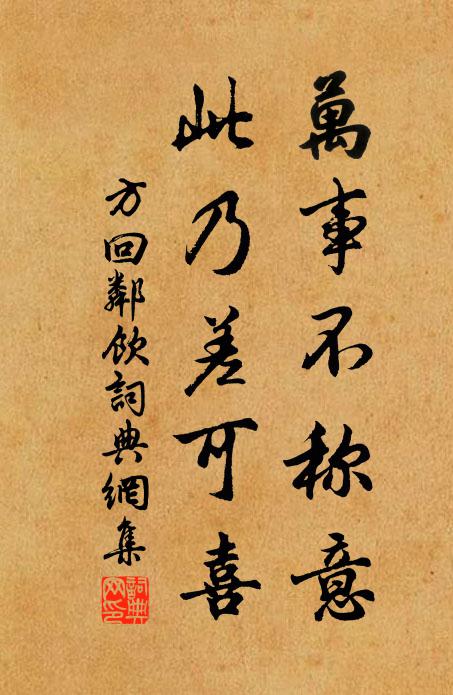 萬事不称意
此乃差可喜
方回鄰飲詞典網集
詞典
网印